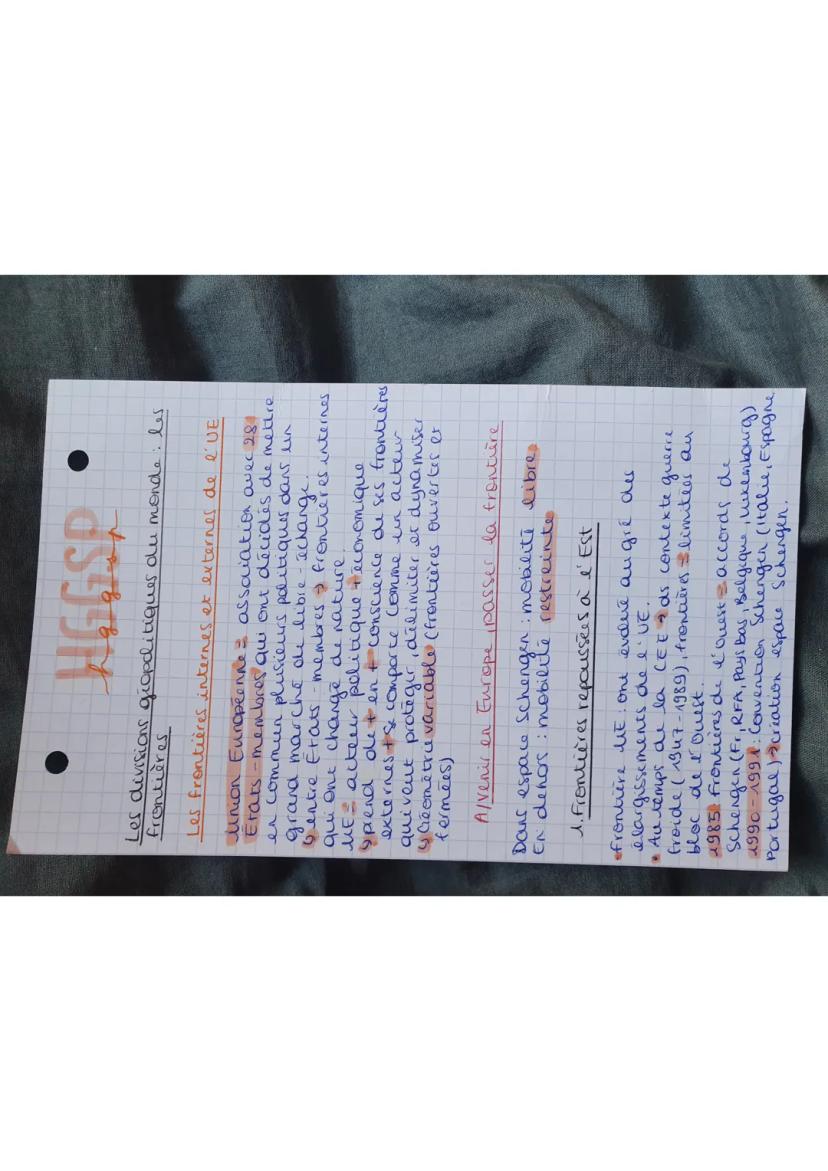 HGGSP
hggsp
Les divisions géopolitiques du monde : les
frontières
Les frontières internes et externes de l'UE
Union Européenne = association avec 28
États-membres qui ont décidés de mettre
en commun plusieurs politiques dans un
grand marché du libre-échange.
↳ entre États-membres → frontières internes
qui ont changé de nature.
UE = acteur politique + économique
↳ prend de + en + conscience de ses frontières
externes + se comporte comme un acteur
qui veut protéger, délimiter et dynamiser
↳ Géométrie variable (frontières ouvertes et
fermées)
A/Venir en Europe, passer la frontière
Dans espace Schengen : mobilité libre.
En dehors : mobilité restreinte.
1. Frontières repoussées à l'Est
• Frontière UE ont évolué au gré des
élargissements de l'UE.
• Au temps de la CEE → ds contexte guerre
froide (1947-1989), frontières = limitées au
bloc de l'Ouest.
1985 : Frontières de l'Ouest = accords de
Schengen (Fr, RFA, Pays Bas, Belgique, Luxembourg)
1990-1991 : Convention Schengen (Italie, Espagne
Portugal) → création espace Schengen.